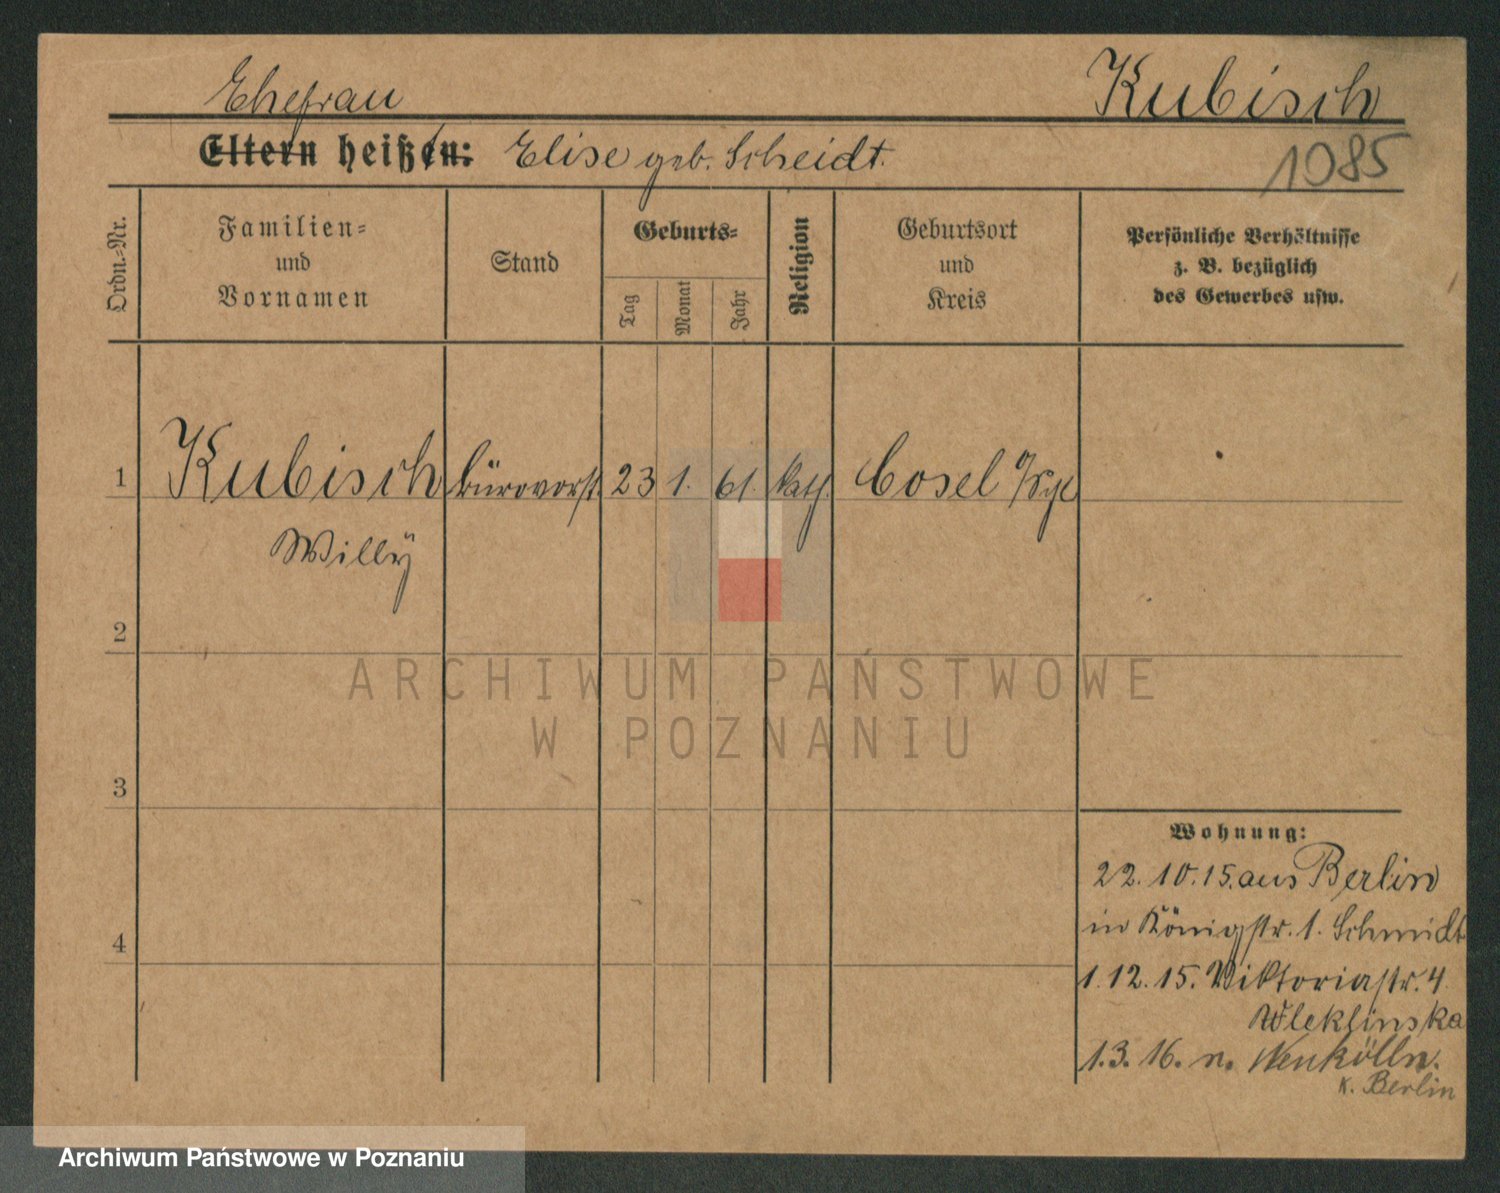 Ehefrau Kubisch
Eltern heißen: Elise geb. Scheidt. 1085
Ordn.-Nr.
Familien-
und
Vornamen
Stand
Geburts-
Tag
Monat
Jahr
Religion
Geburtsort
und
Kreis
Persönliche Verhältnisse
z. B. bezüglich
des Gewerbes usw.
1 Kubisch Bürovorst. 23 1. 61. kath. Cosel
Willy
2
ARCHIWUM PAŃSTWOWE
W POZNANIU
3
Wohnung:
22.10.15. aus Berlin
in Königstr. 1. Schmidt
4
1.12.15. Viktoriastr. 4
1.3.16. n. Neukölln.
k. Berlin
Archiwum Państwowe w Poznaniu